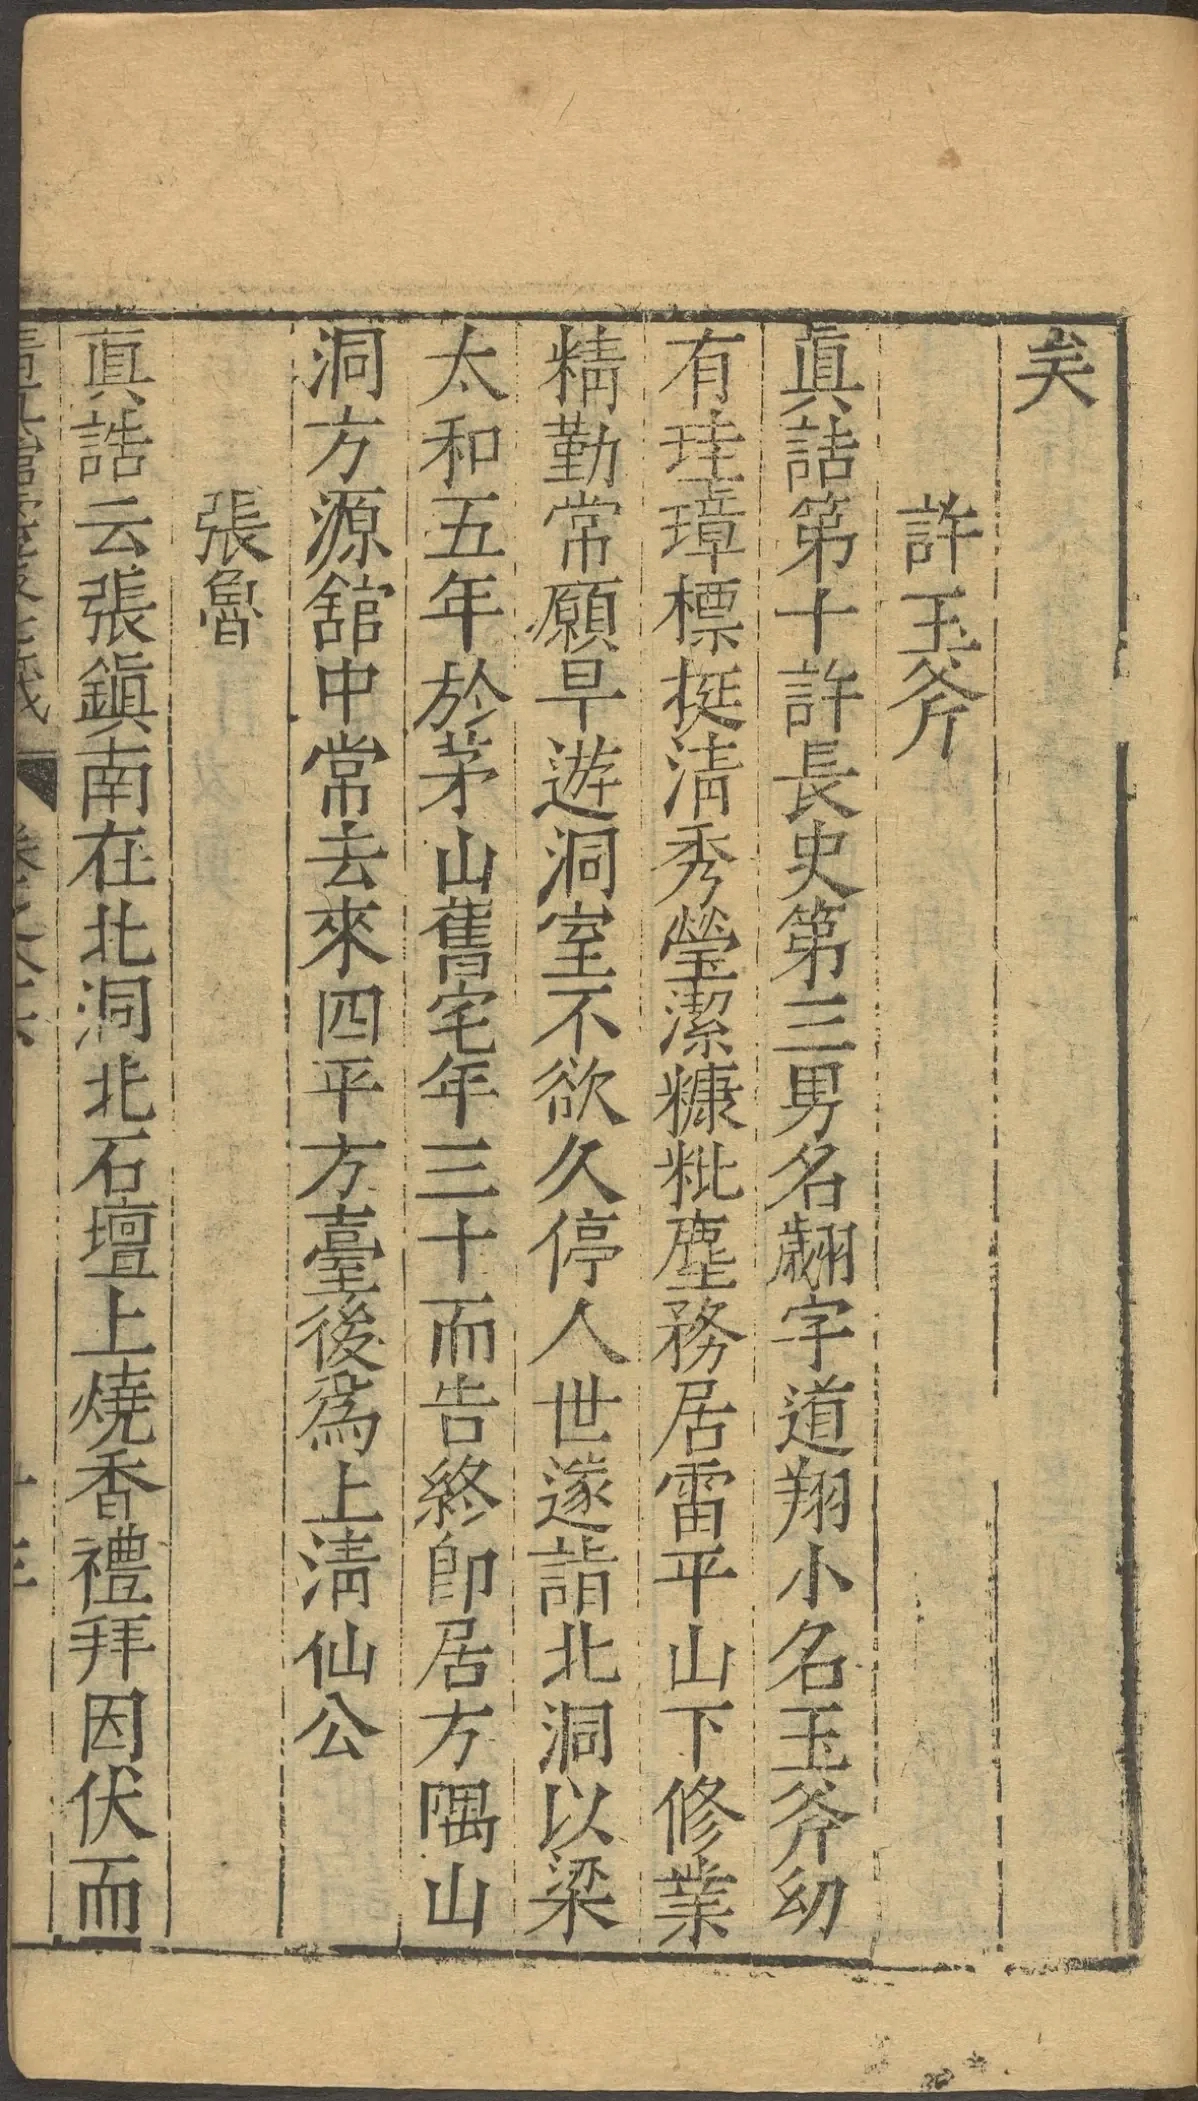 矣
許玉斧
眞誥第十許長史第三男名翽字道翔小名玉斧幼
有珪璋標挺淸秀瑩潔糠粃塵務居雷平山下修業
精勤常願早遊洞室不欲久停人世遂詣北洞以梁
太和五年於茅山舊宅年三十而告終卽居方隅山
洞方源舘中常去來四平方臺後爲上淸仙公
張魯
眞誥云張鎭南在北洞北石壇上燒香禮拜因伏而